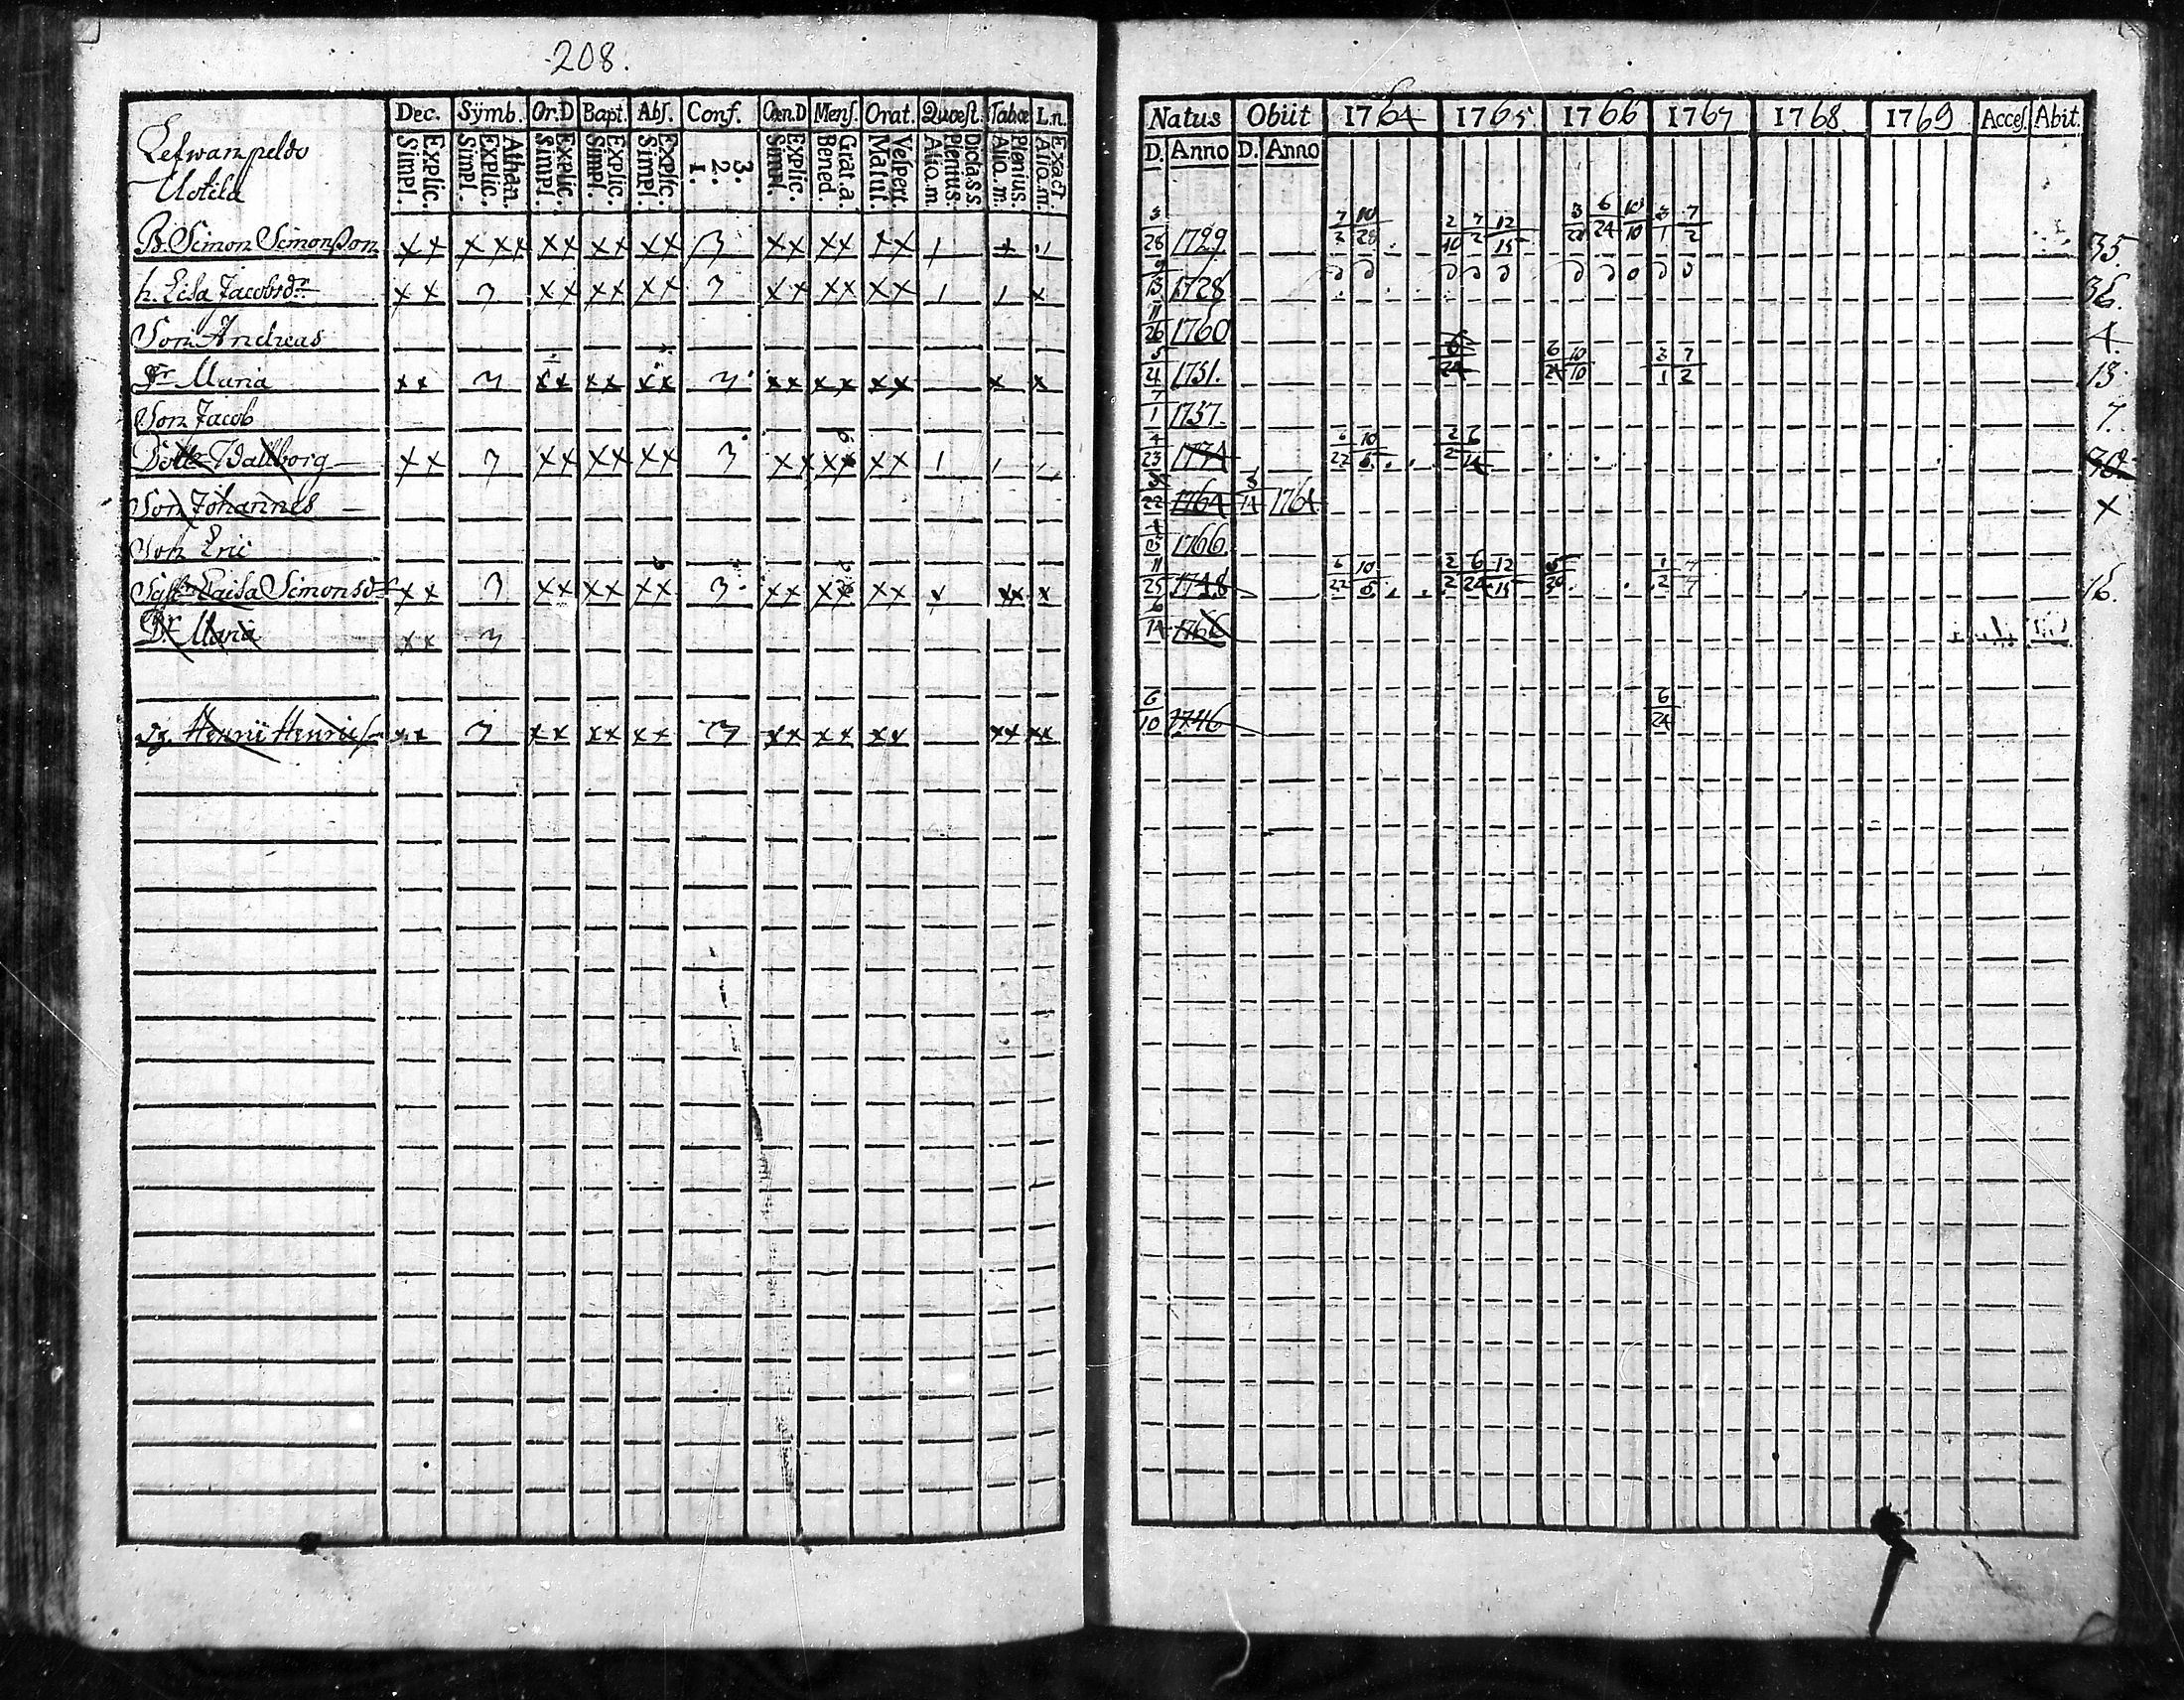 208.
Dec. Sÿmb. Or.D Bapt. Abs. Conf. Cœn.D Mens. Orat. Quæst. Tabœ L.n.
Simpl. Explic. Simpl. Explic. Athan. Simpl. Explic. Simpl. Explic. Simpl. Explic. 1. 2. 3. Simpl. Explic. Bened. Grat.a. Matut. Vespert. Alio.m. Plenius. Dicta.s.s. Alio.m. Plenius. Alio.m. Exact
Uotila
B. Simon Simonsson xx xxx xx xx xx 3 xx xx xx
h. Lisa Jacobsdr xx 3 xx xx xx 3 xx xx xx x
Son Andreas
Dr Maria xx 3 xx xx xx 3 xx xx xx x x
Son Jacob
Dotter Wallborg xx 3 xx xx xx 3 xx xx xx
Son Johannes
Son Eric
Syster Caisa Simonsdr xx 3 xx xx xx 3 xx xx xx x xx x
Dr Maria xx 3
Henric Henricss xx 3 xx xx xx 3 xx xx xx xx xx
Natus Obiit 1764 1765 1766 1767 1768 1769 Acces. Abit.
D. Anno D. Anno
28 1729 7/2 10/28 2/10 7/2 12/15 6/24 10/10 3/1 7/2 35
13 1728 36.
11/26 1760 4.
5/4 1751. 6/24 6/24 10/10 3/1 7/2 13
7/1 1757. 7.
4/23 1734 6/22 10/6 2/2 6/24
22 1764 14 1764 x
1766.
11/25 1748 6/22 10/6 2/2 6/24 12/15 1/2 7/4 16.
6/14 1766
6/10 1746 6/24